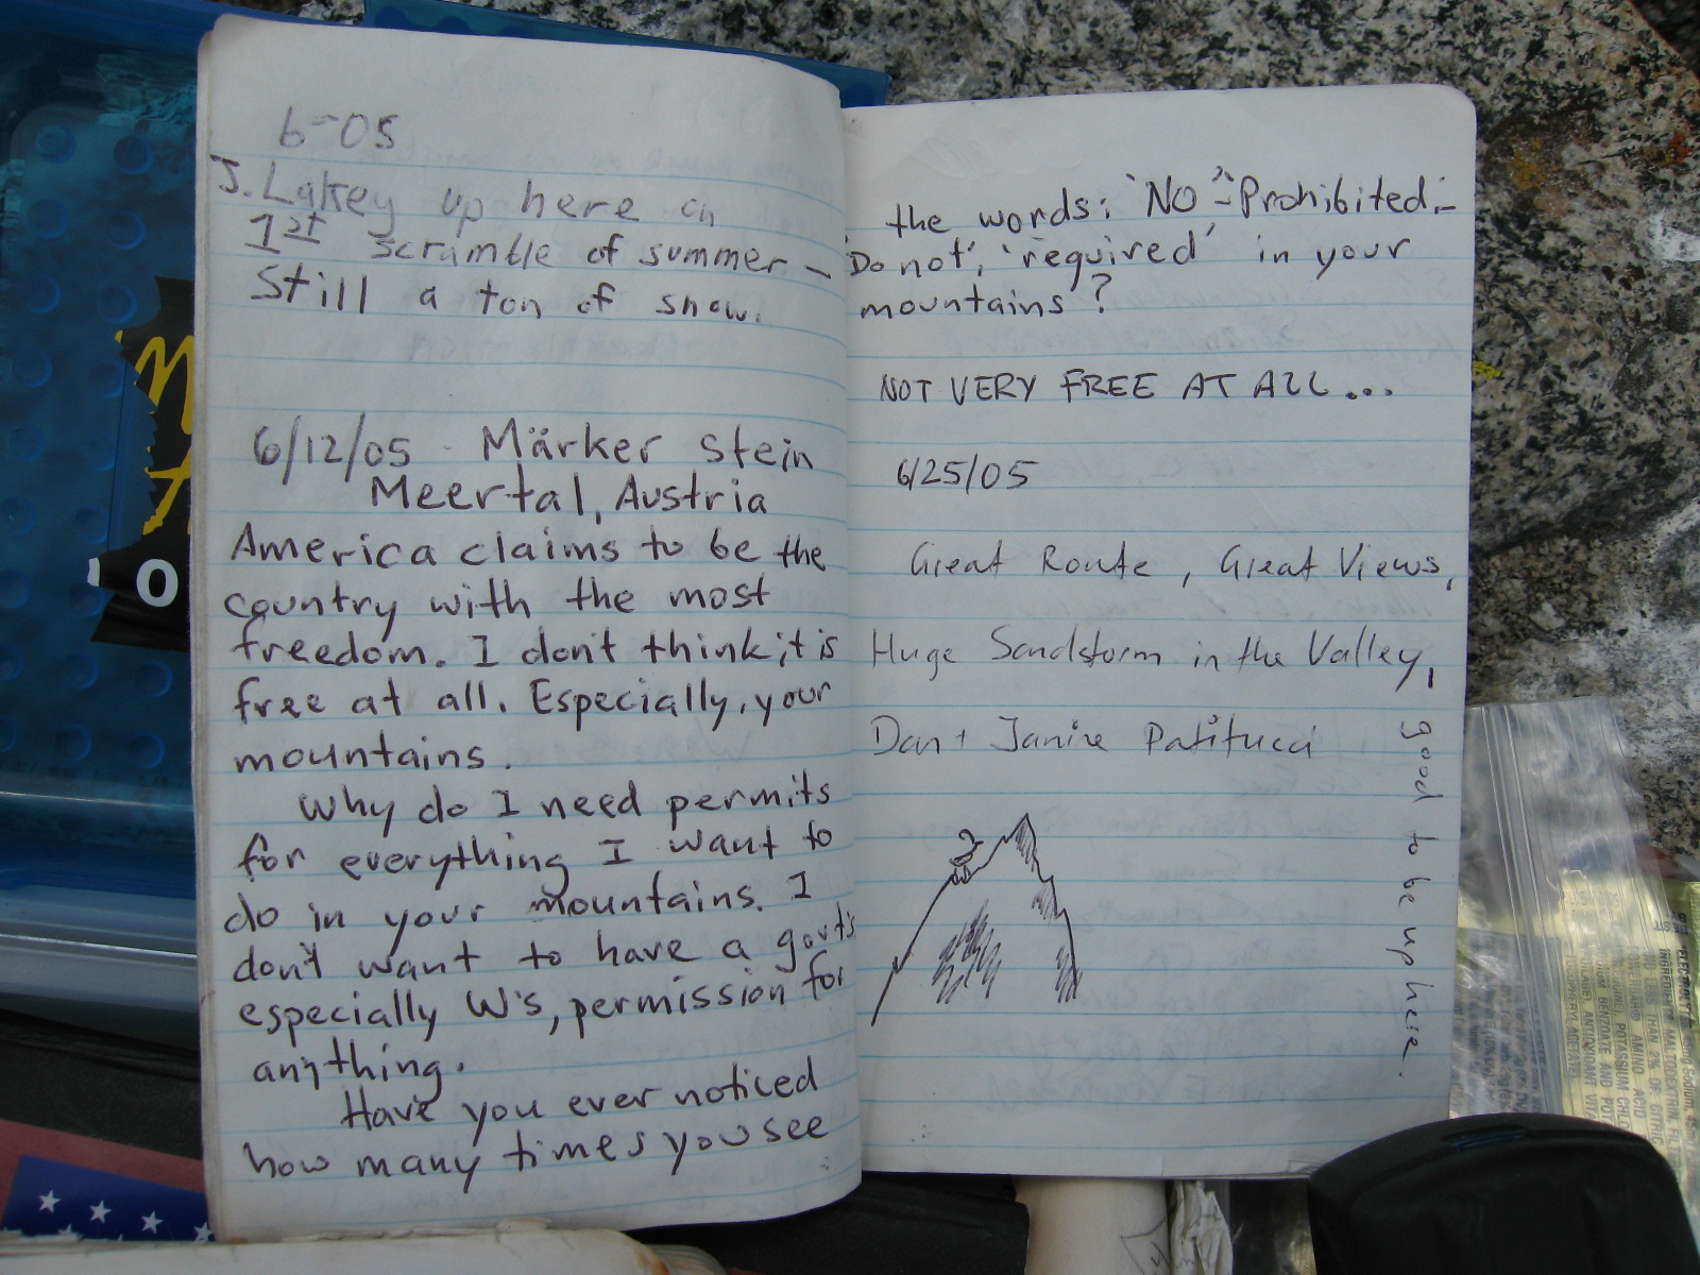 6-05
J. Lakey up here on
1st scramble of summer -
Still a ton of snow.
6/12/05 - Märker Stein
Meertal, Austria
America claims to be the
country with the most
freedom. I don't think it is
free at all. Especially, your
mountains.
Why do I need permits
for everything I want to
do in your mountains. I
don't want to have a govt's
especially W's, permission for
anything.
Have you ever noticed
how many times you see
the words: 'NO', 'Prohibited,'
'Do not', 'required' in your
mountains?
NOT VERY FREE AT ALL...
6/25/05
Great Route, Great Views,
Huge Sandstorm in the Valley,
Dan + Janine Patitucci
good to be up here.
O